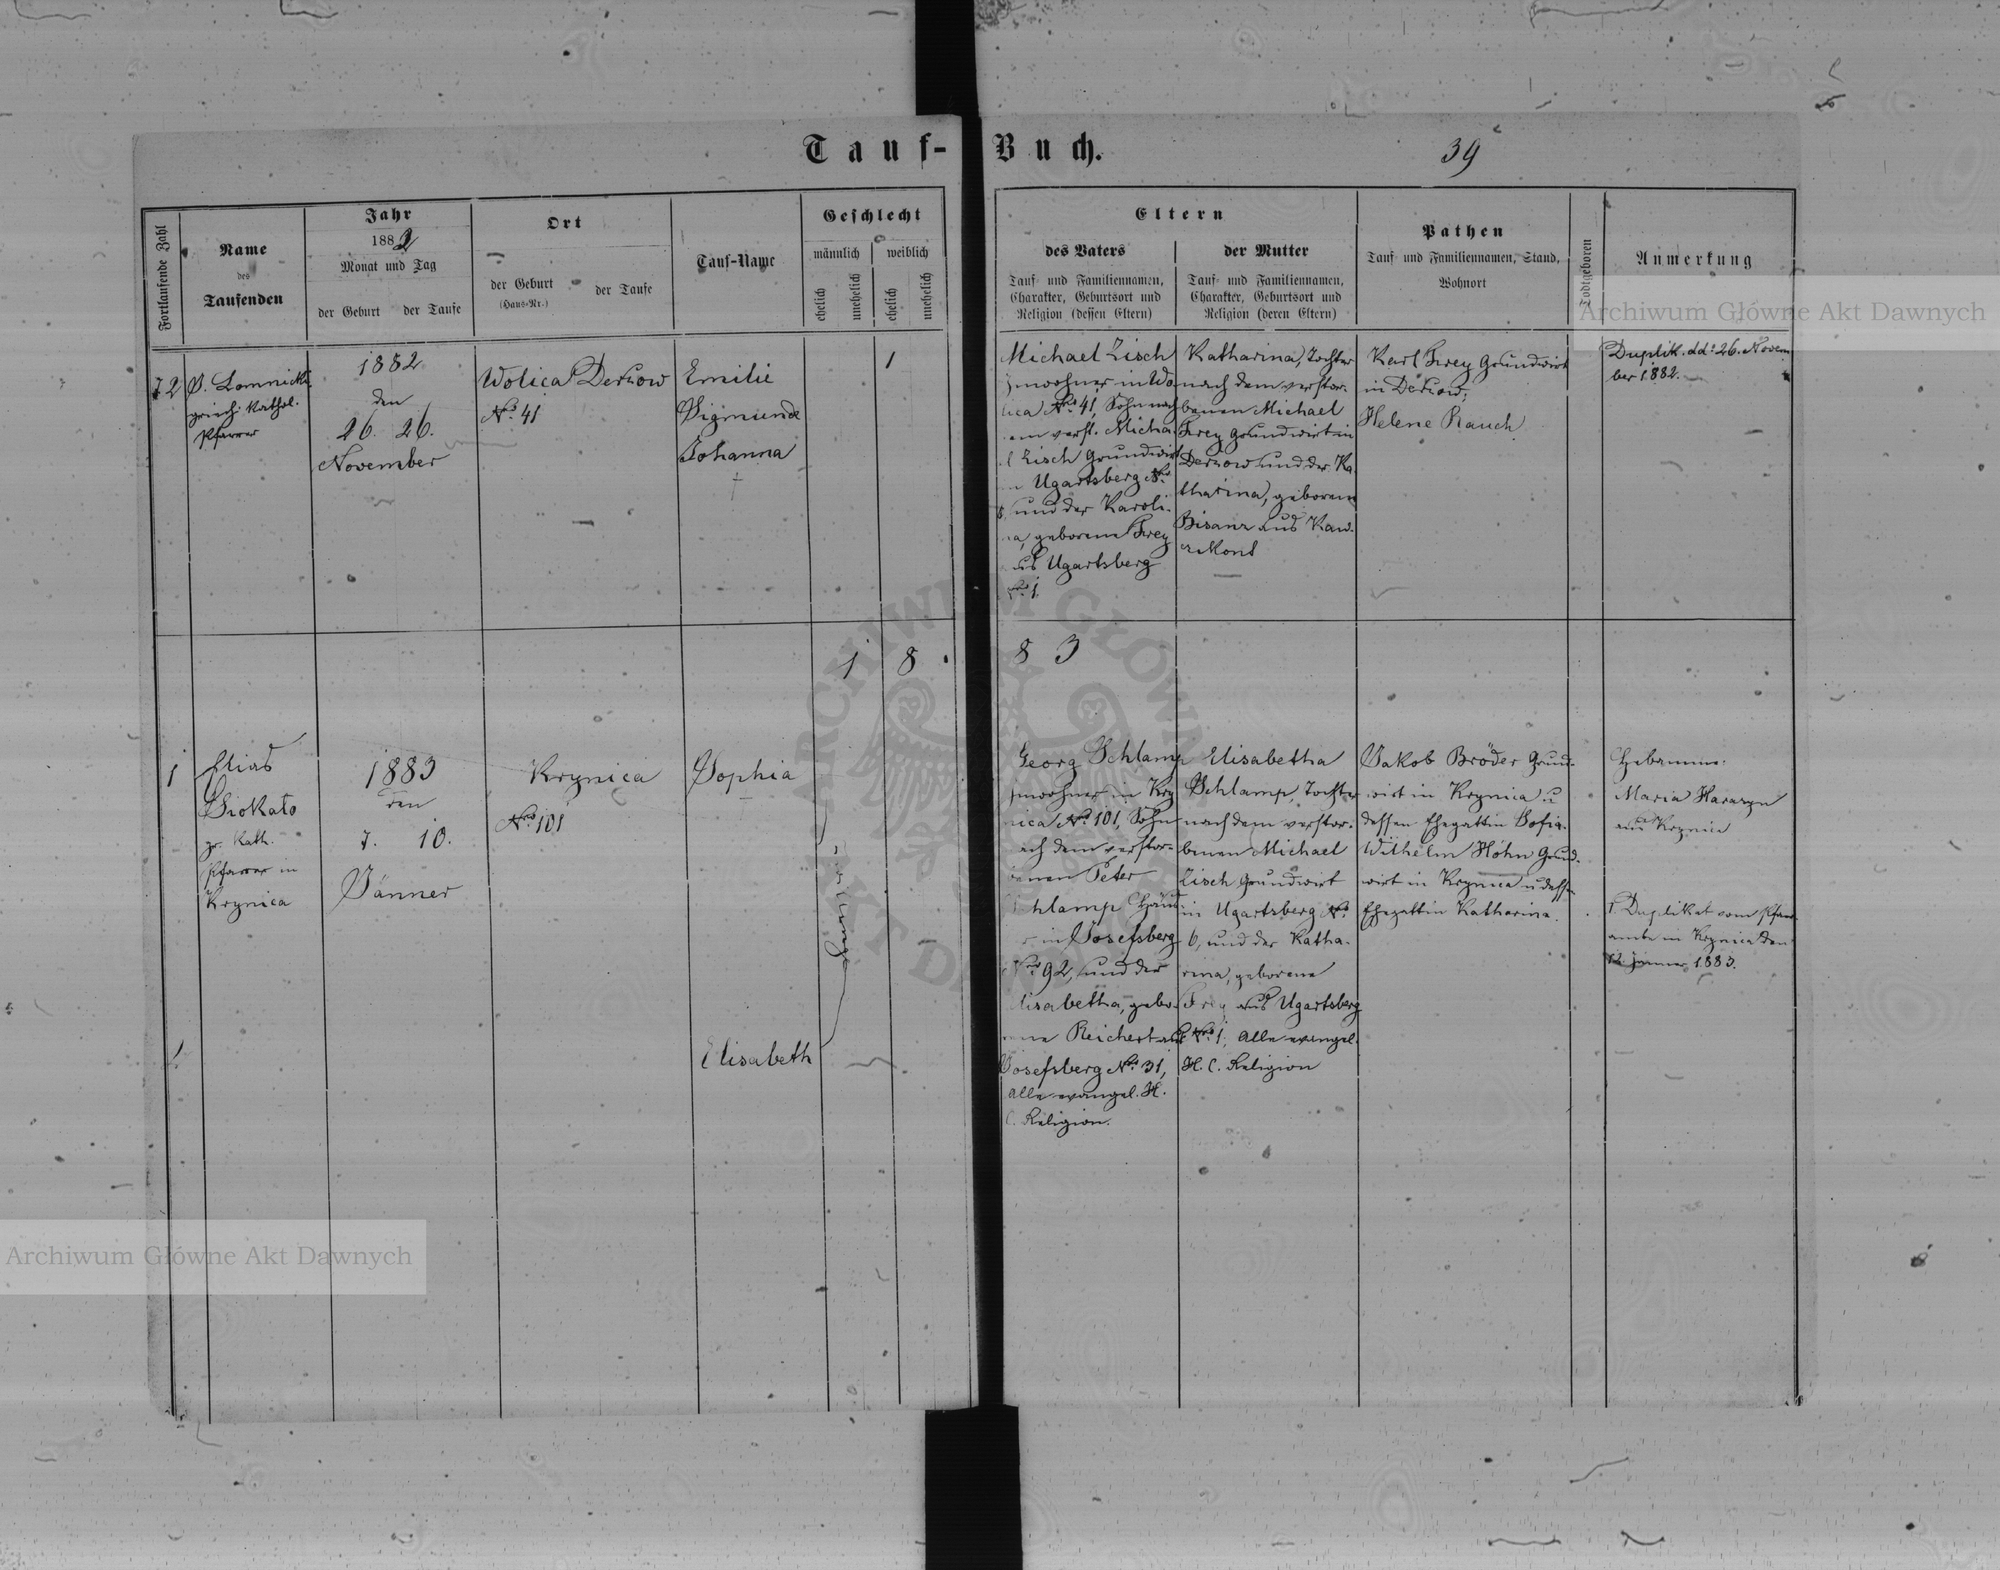 Tauf-Buch.
39
Fortlaufende Zahl
Name
des
Taufenden
Jahr
1882
Monat und Tag
der Geburt
der Taufe
Ort
der Geburt
(Haus-Nr.)
der Taufe
Tauf-Name
Geschlecht
männlich
weiblich
ehelich
unehelich
ehelich
unehelich
Eltern
des Vaters
Tauf- und Familiennamen,
Charakter, Geburtsort und
Religion (dessen Eltern)
der Mutter
Tauf- und Familiennamen,
Charakter, Geburtsort und
Religion (deren Eltern)
Pathen
Tauf- und Familiennamen, Stand,
Wohnort
Todtgeboren
Anmerkung
72
Lomnicki
griech. kathol.
Pfarrer
1882
den
26. 26.
November
Wolica Derżow
Nro 41
Emilie
Sigmunda
Johanna
1
Michael Zisch
Inwohner in Wo
lica Nro 41, Sohn nach
em verst. Micha
l Zisch Grundwirt
n Ugartsberg Nro
und der Karoli-
na, geborene Frey
aus Ugartsberg
Nro 1
Katharina, Tochter
nach dem verstor-
benen Michael
Frey Grundwirt in
Derżow und der Ka-
tharina, geborene
Bisanz aus
Karl Frey Grundwirt
in Derżow;
Helene Rauch
Duplik. dd: 26. Novem
ber 1882.
1 8 8 3
1
Elias
Siokało
gr. kath.
Pfarrer in
Krynica
1883
den
7. 10.
Jänner
Krynica
Nro 101
Sophia
Georg Schlamp
Inwohner in Kry
nica Nro 101, Sohn
ach dem verstor-
benen Peter
chlamp
in Josefsberg
Nro 92, und der
lisabetha, gebo-
rene Reichert aus
Josefsberg Nro 31,
alle evangel. H.
C. Religion.
Elisabetha
Schlamp, Tochter
nach dem verstor-
benen Michael
Zisch Grundwirt
in Ugartsberg Nro
6, und der Katha-
rina, geborene
Frey aus Ugartsberg
Nro 1; alle evangel.
H. C. Religion
Jakob Bröder Grund-
wirt in Krynica u
dessen Ehegattin Sofia.
Wilhelm Höhn Grund-
wirt in Krynica u dessen
Ehegattin Katharina.
Hebamme:
Maria Harazyn
aus Krynica
1. Duplikat vom Pfarr-
amte in Krynica den
12. Jänner 1883.
Zwillinge
Elisabeth
Archiwum Główne Akt Dawnych
Archiwum Główne Akt Dawnych
ARCHIWUM GŁÓWNE AKT DAWNYCH